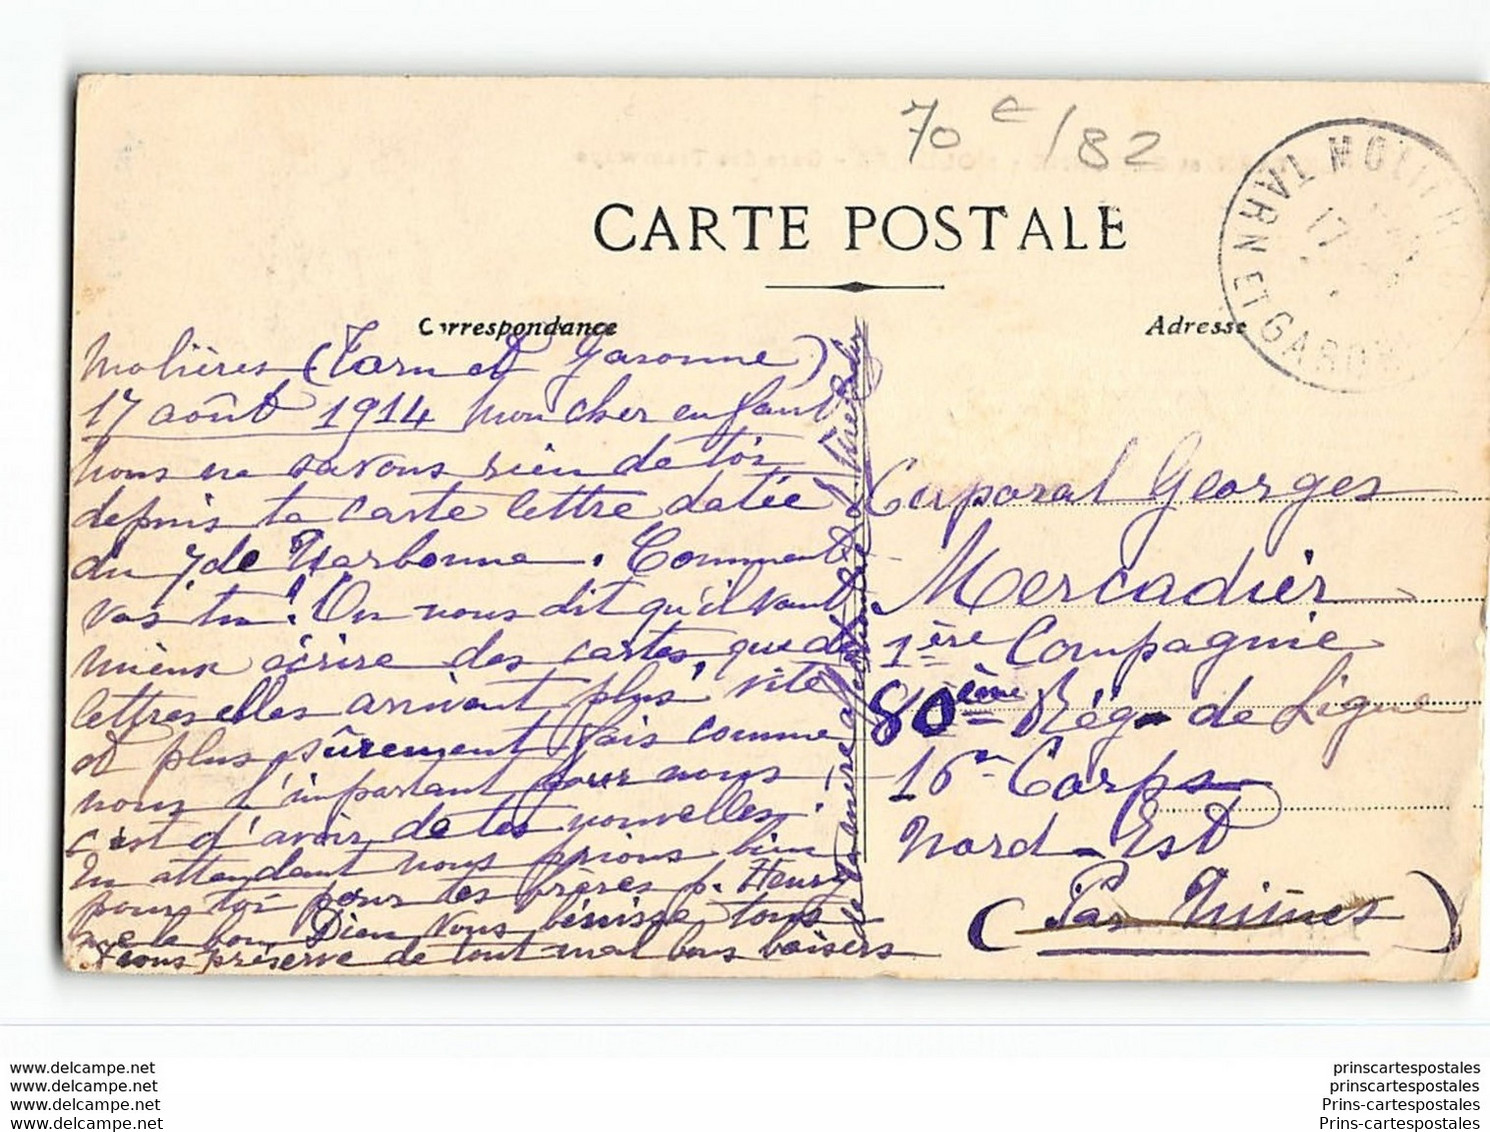 70 c/82
CARTE POSTALE
MOLIER
TARN ET GARONNE
17
Correspondance
Adresse
Molières (Tarn et Garonne)
17 août 1914 Mon cher enfant
Nous ne savons rien de toi
depuis ta carte lettre datée
du 7 de Narbonne. Comment
vas-tu! On nous dit qu'il vaut
mieux écrire des cartes que des
lettres elles arrivent plus vite
et plus sûrement fais comme
nous l'important pour nous
c'est d'avoir de tes nouvelles.
En attendant nous prions bien
pour toi pour tes frères p. Henry
que le bon Dieu vous bénisse tous
vous préserve de tout mal bons baisers
de ta mère affectionnée Mercadier
Caporal Georges
Mercadier
1ère Compagnie
80ème Rég. de Ligne
16e Corps
Nord-Est
(Par Nîmes)
www.delcampe.net
www.delcampe.net
www.delcampe.net
www.delcampe.net
prinscartespostales
prinscartespostales
Prins-cartespostales
Prins-cartespostales